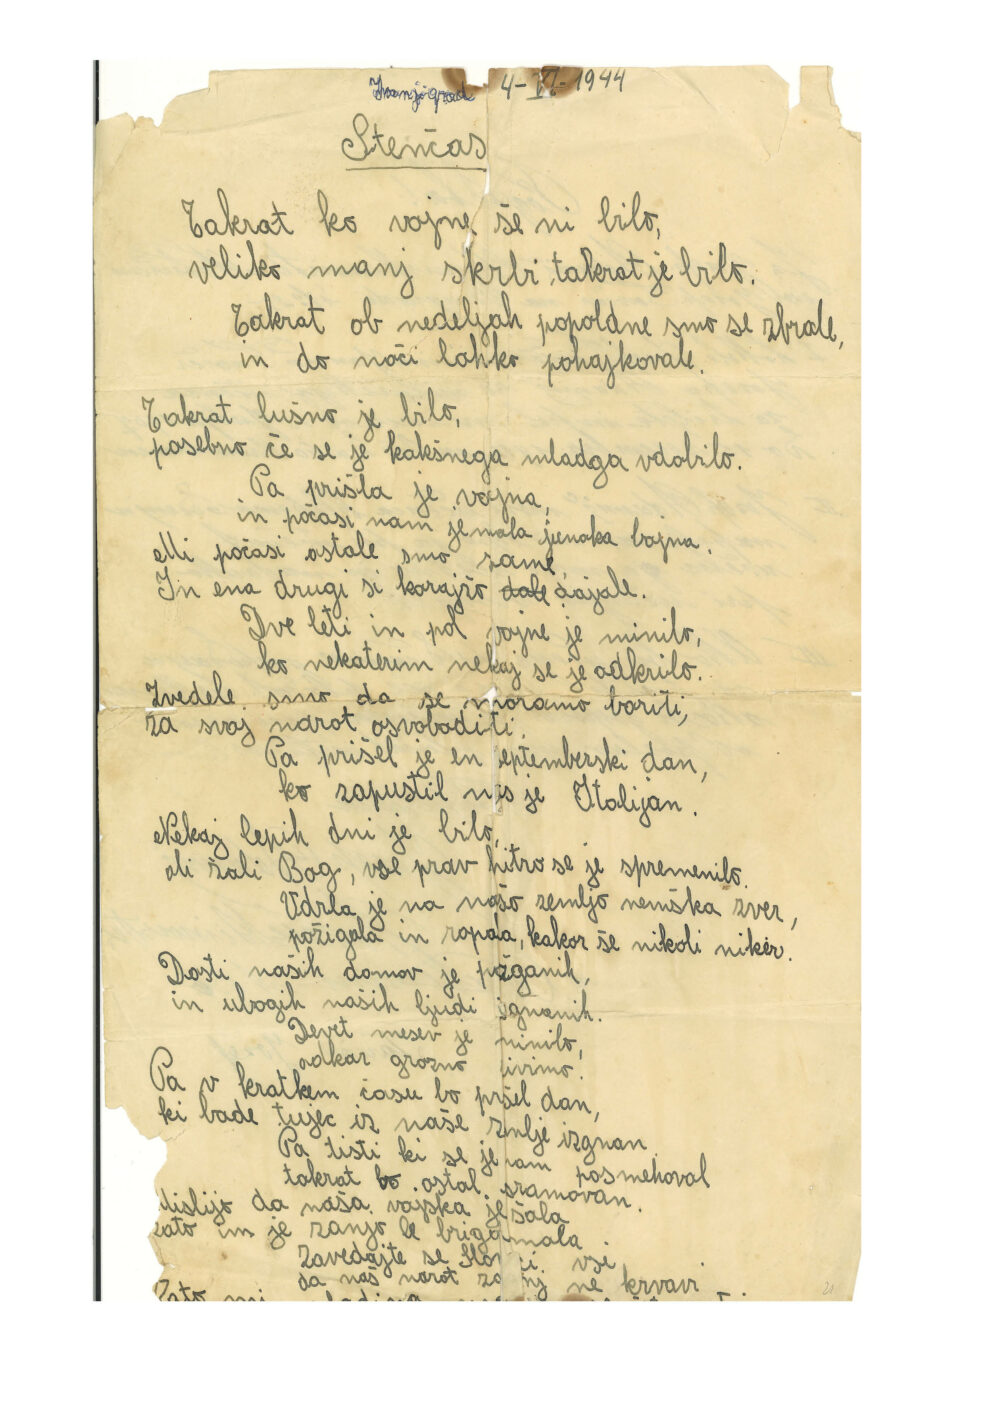 Ivanjigrad 4-VI-1944
Stenčas
Takrat ko vojne še ni bilo,
veliko manj skrbi takrat je bilo.
Takrat ob nedeljah popoldne smo se zbrale,
in do noči lahko pohajkovale.
Takrat lušno je bilo,
posebno če se je kakšnega mladga vdobilo.
Pa prišla je vojna,
in počasi nam je mala jenaka bojna.
Mi počasi ostale smo same,
In ena drugi si korajžo dale dajale.
Dve leti in pol vojne je minilo,
ko nekaterim nekaj se je odkrilo.
Zvedele smo da se moramo boriti,
za svoj narot osvoboditi.
Pa prišel je en eptemberski dan,
ko zapustil nas je Italijan.
Nekaj lepih dni je bilo,
ali žali Bog, vse prav hitro se je spremenilo.
Vdrla je na našo zemljo nemška zver,
požigala in ropala, kakor še nikoli nikér.
Dosti naših domov je požganih,
in ubogih naših ljudi ignanih.
Devet mesev je minilo,
odkar grozno živimo.
Pa v kratkem času bo pršel dan,
ki bade tujec iz naše zmlje izgnan
Pa tisti ki se je nam posmehoval
takrat bo ostal sramovan.
islijo da naša vojska je šala
zato im je zanjo le briga mala.
Zavedajte se vsi
da naš narot ne krvavi
Zato
21